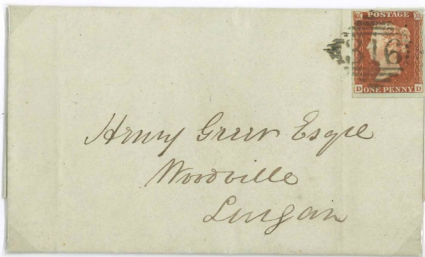 POSTAGE
316
D D
ONE PENNY
Henry Greer Esqre
Woodville
Lurgan